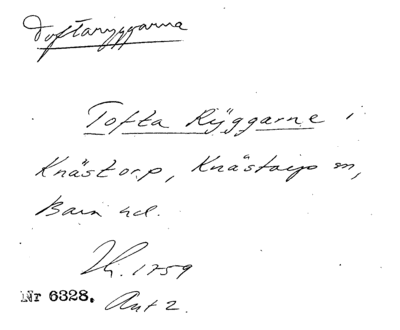 Toftaryggarna
Tofta Ryggarne i
Knästorp, Knästorps sn,
Bara hd.
Th. 1759
Nr 6328. Akt 2.